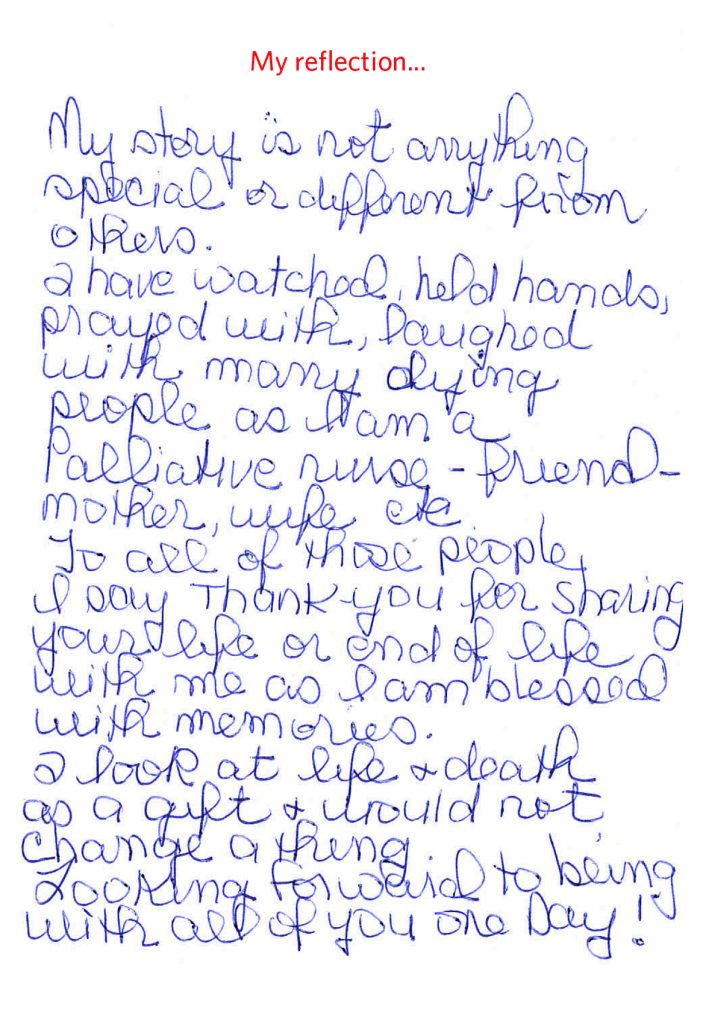 My reflection...
My story is not anything
special or different from
others.
I have watched, held hands,
prayed with, laughed
with many dying
people as I am a
Palliative nurse - friend -
mother, wife etc
To all of those people,
I say Thank-you for sharing
your life or end of life
with me as I am blessed
with memories.
I look at life & death
as a gift & would not
change a thing
Looking forward to being
with all of you one Day!